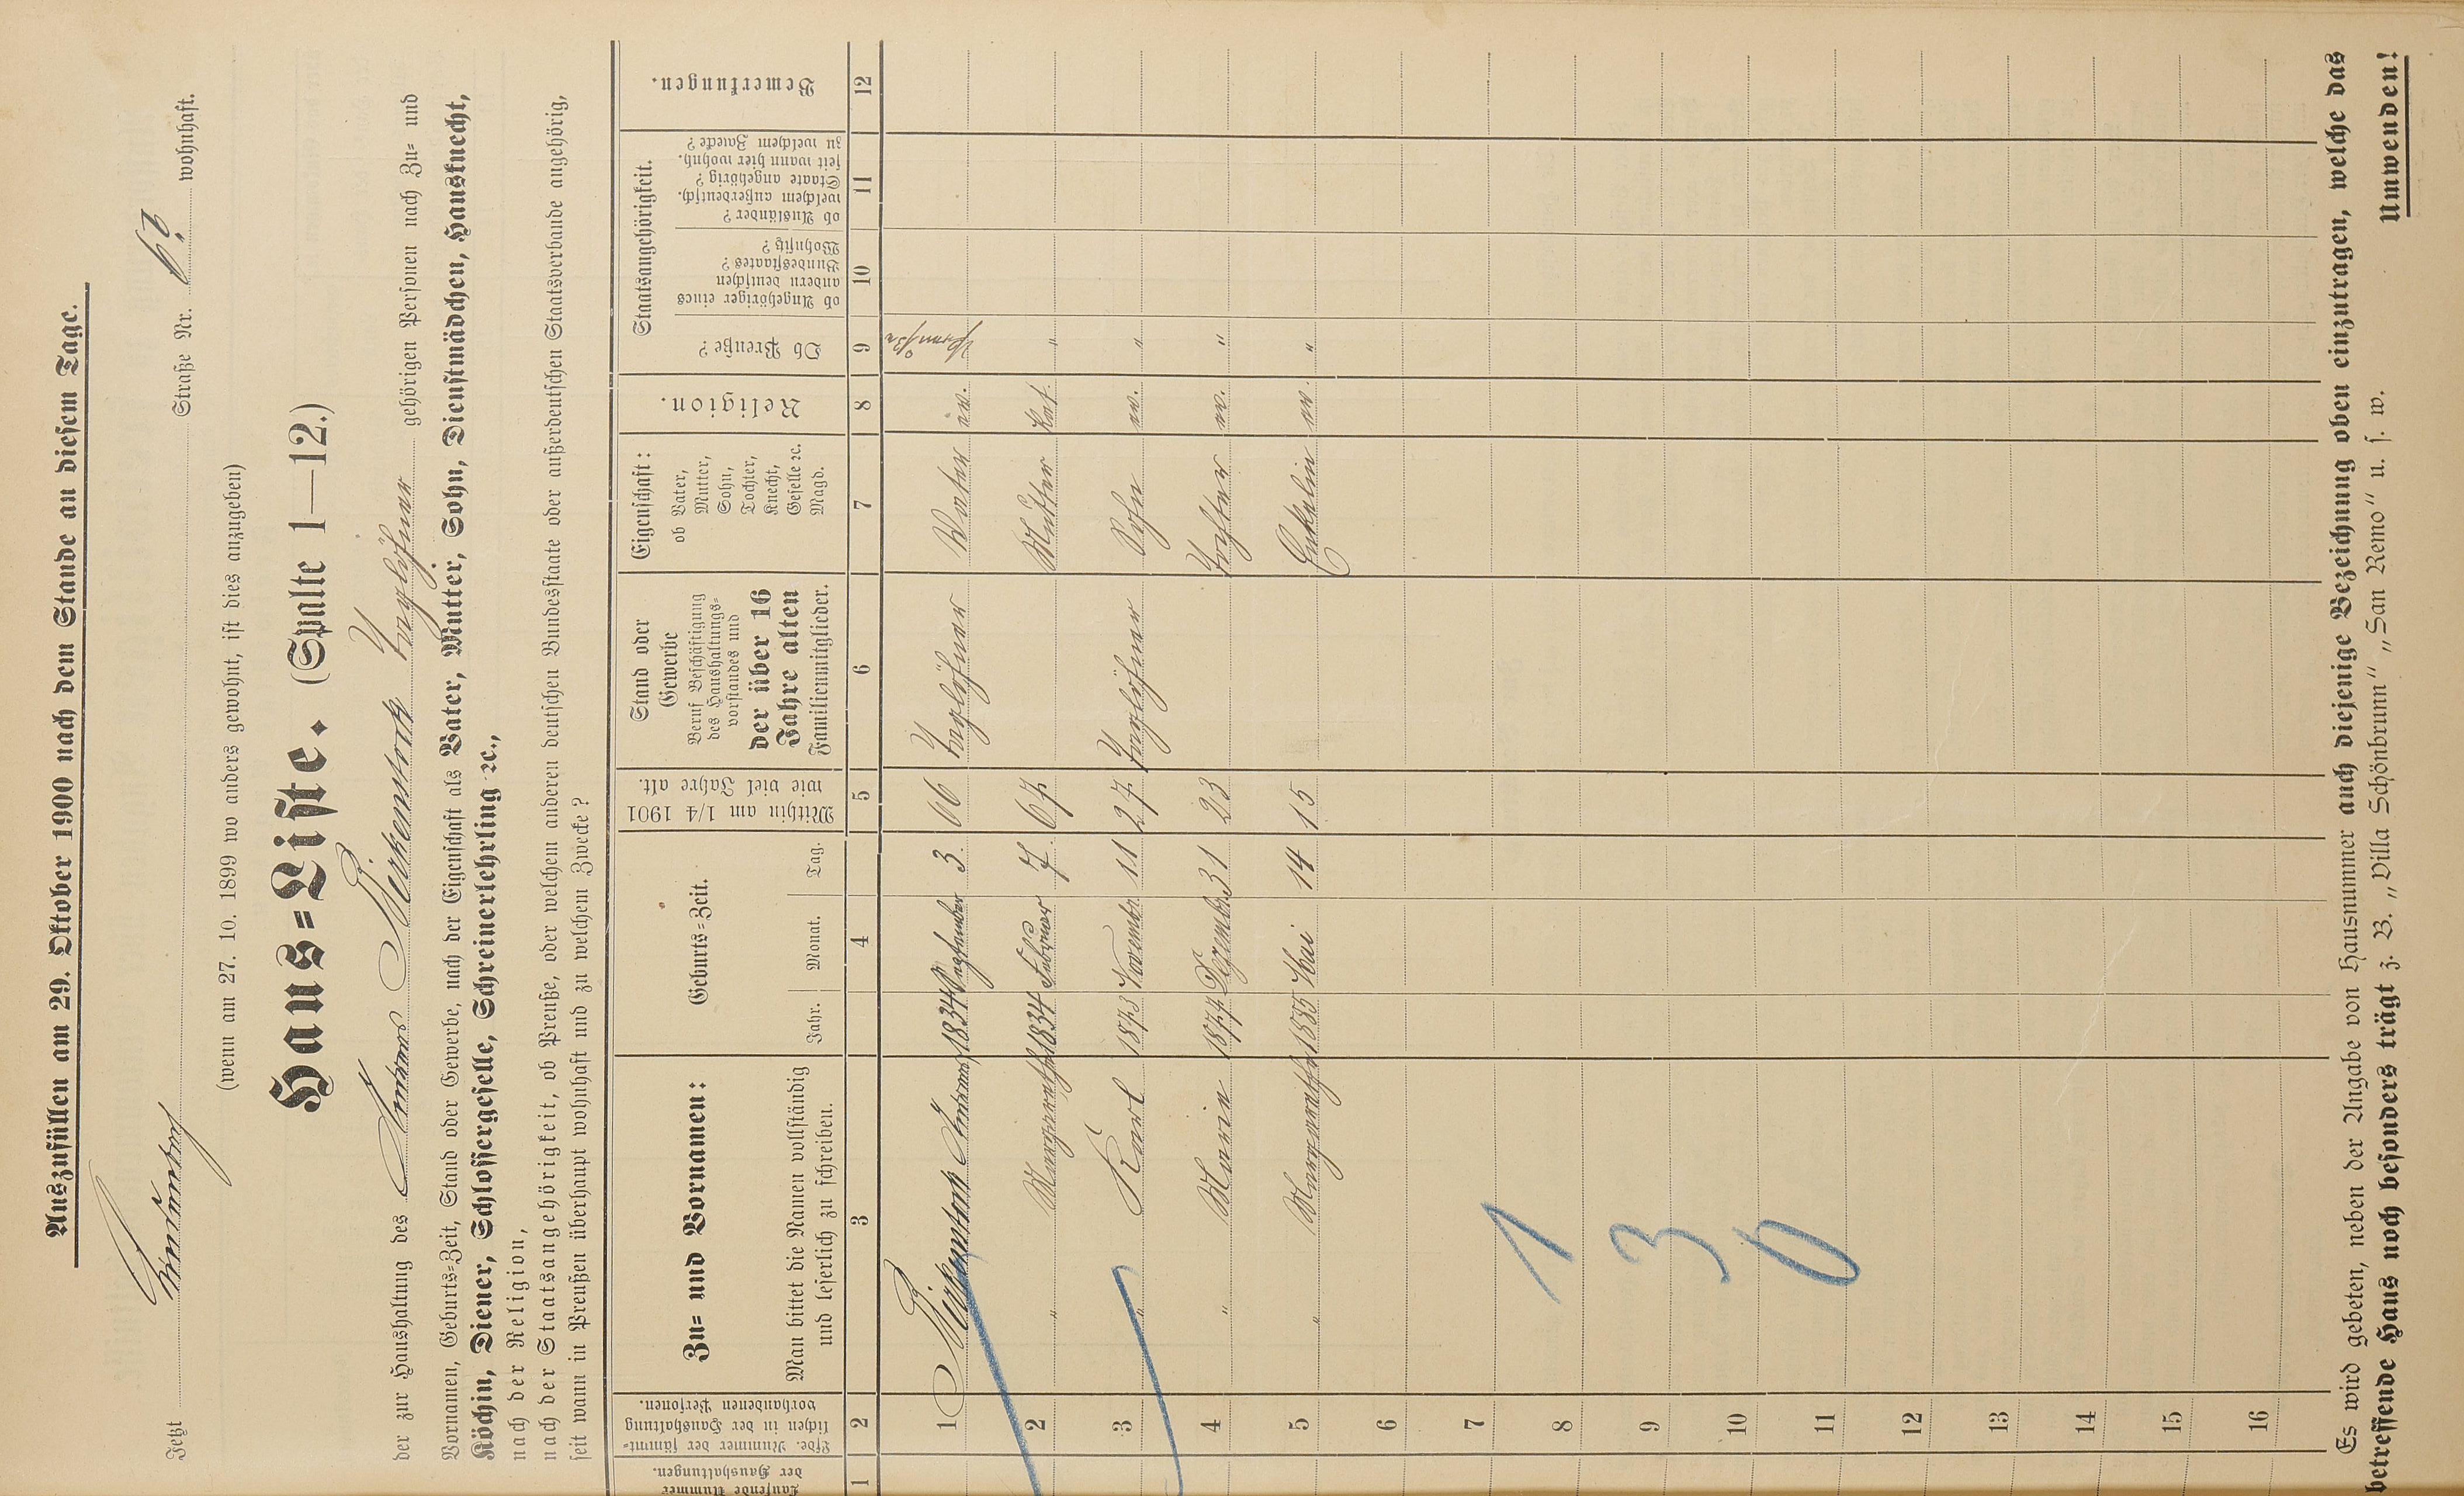 Auszufüllen am 29. Oktober 1900 nach dem Stande an diesem Tage.
Jetzt Straße Nr. wohnhaft.
(wenn am 27. 10. 1899 wo anders gewohnt, ist dies anzugeben)
Haus-Liste. (Spalte 1—12.)
der zur Haushaltung des Andreas Birkenstock Taglöhner gehörigen Personen nach Zu- und
Vornamen, Geburts-Zeit, Stand oder Gewerbe, nach der Eigenschaft als Vater, Mutter, Sohn, Dienstmädchen, Hausknecht,
Köchin, Diener, Schlossergeselle, Schreinerlehrling ꝛc.,
nach der Religion,
nach der Staatsangehörigkeit, ob Preuße, oder welchem anderen deutschen Bundesstaate oder außerdeutschen Staatsverbande angehörig,
seit wann in Preußen überhaupt wohnhaft und zu welchem Zwecke?
Laufende Nummer der Haushaltungen.
Lfde. Nummer der sämmtlichen in der Haushaltung vorhandenen Personen.
Zu- und Vornamen:
Man bittet die Namen vollständig
und leserlich zu schreiben.
Geburts-Zeit.
Jahr. Monat. Tag.
Mithin am 1/4 1901
wie viel Jahre alt.
Stand oder
Gewerbe
Beruf Beschäftigung
des Haushaltungs-
vorstandes und
der über 16
Jahre alten
Familienmitglieder.
Eigenschaft:
ob Vater,
Mutter,
Sohn,
Tochter,
Knecht,
Geselle ꝛc.
Magd.
Religion.
Staatsangehörigkeit.
Ob Preuße?
ob Angehöriger eines
andern deutschen
Bundesstaates?
Wohnsitz?
ob Ausländer?
welchem außerdeutsch.
Staate angehörig?
seit wann hier wohnh.
zu welchem Zwecke?
Bemerkungen.
1 2 3 4 5 6 7 8 9 10 11 12
1 Birkenstock Andreas 1834 September 3. 66 Taglöhner Vater ev. Preuße
2 " Margarethe 1834 Februar 7. 67 Mutter Kat. "
3 " Karl 1873 November 11 27 Taglöhner Sohn ev. "
4 " Marie 1877 Dezember 31 23 Tochter ev. "
5 " Margarethe 1885 Mai 14 15 Enkelin ev. "
6
7
8
9
10
11
12
13
14
15
16
1
3
0
Es wird gebeten, neben der Angabe von Hausnummer auch diejenige Bezeichnung oben einzutragen, welche das
betreffende Haus noch besonders trägt z. B. „Villa Schönbrunn" „San Remo" u. s. w.
Umwenden!